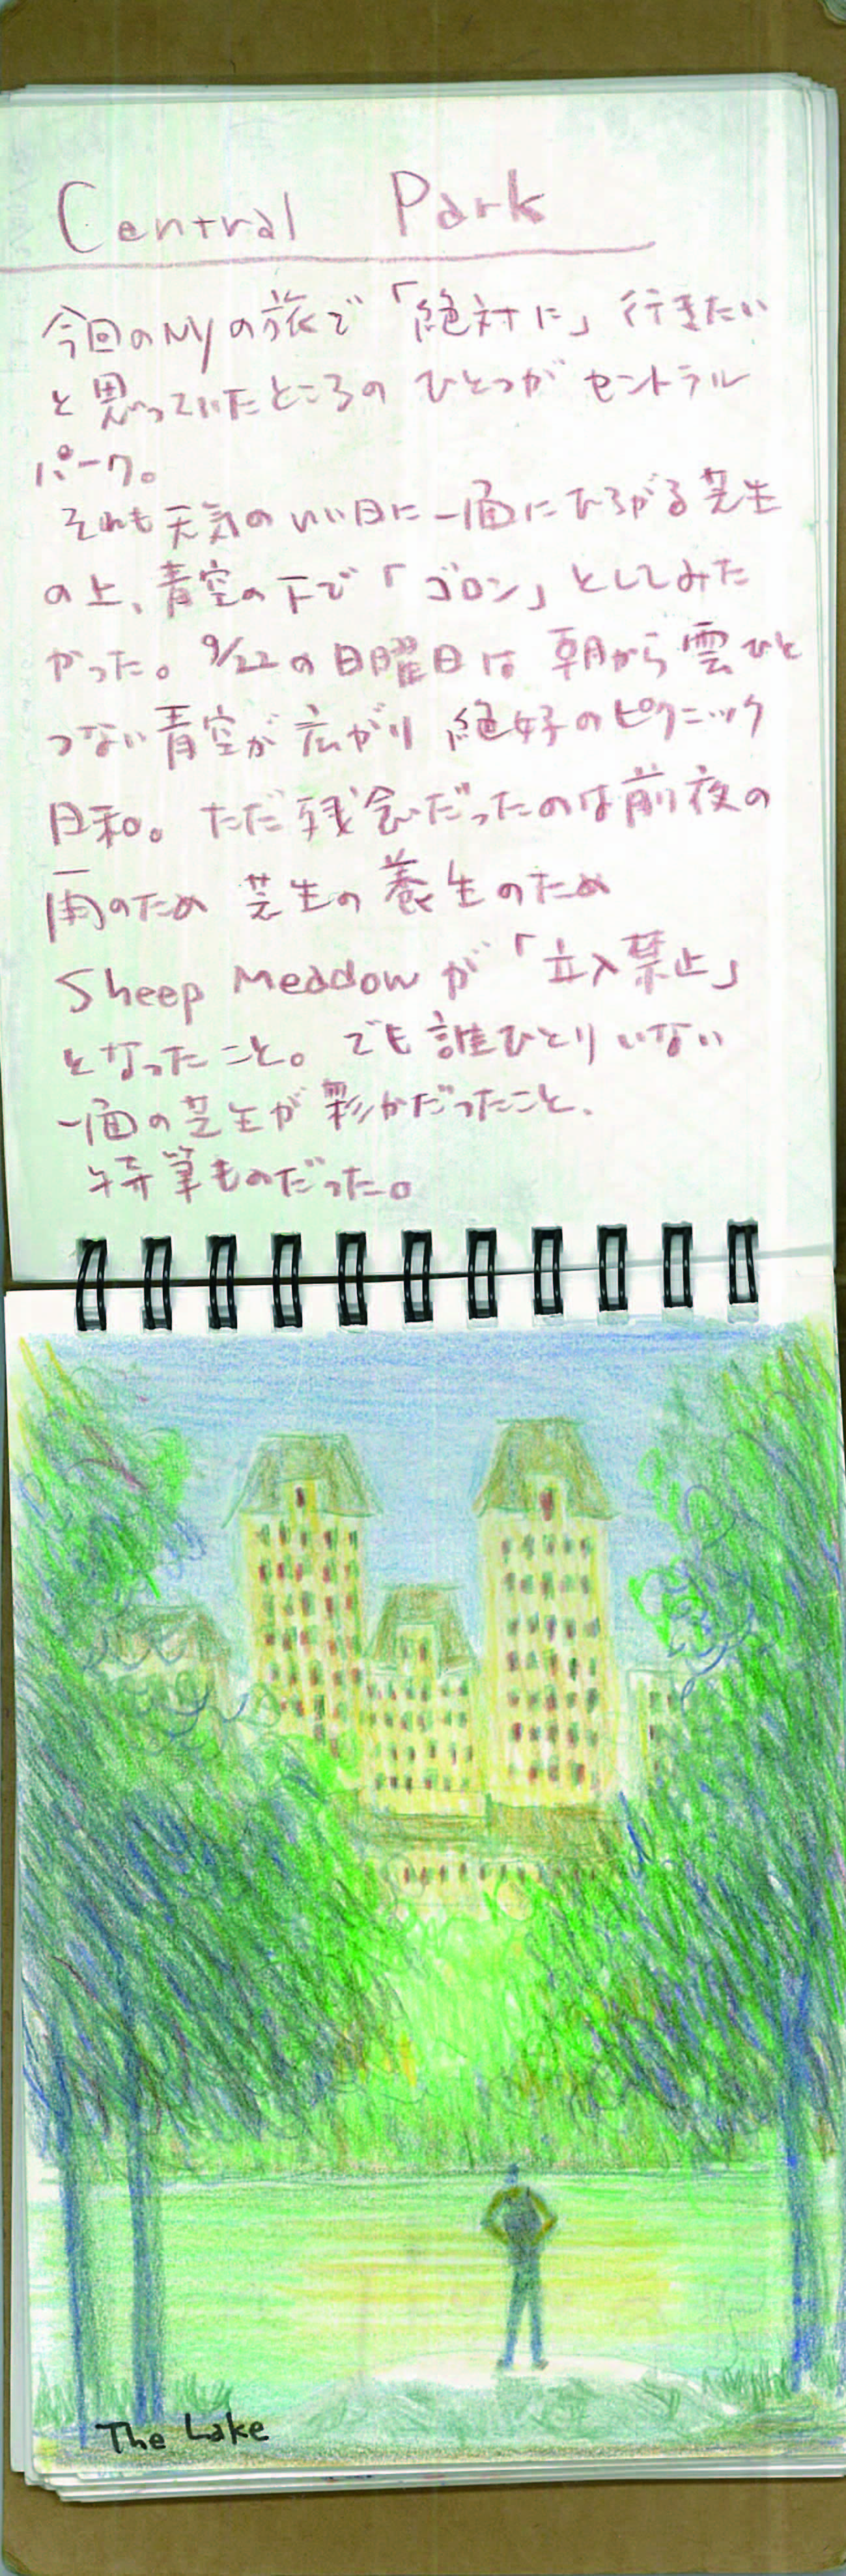 Central Park
今回のNYの旅で「絶対に」行きたい
と思っていたところのひとつがセントラル
パーク。
それも天気のいい日に一面にひろがる芝生
の上、青空の下で「ゴロン」としてみた
かった。9/22の日曜日は朝から雲ひと
つない青空が広がり絶好のピクニック
日和。ただ残念だったのは前夜の
雨のため芝生の養生のため
Sheep Meadowが「立入禁止」
となったこと。でも誰ひとりいない
一面の芝生が彩かだったこと、
特筆ものだった。
The Lake